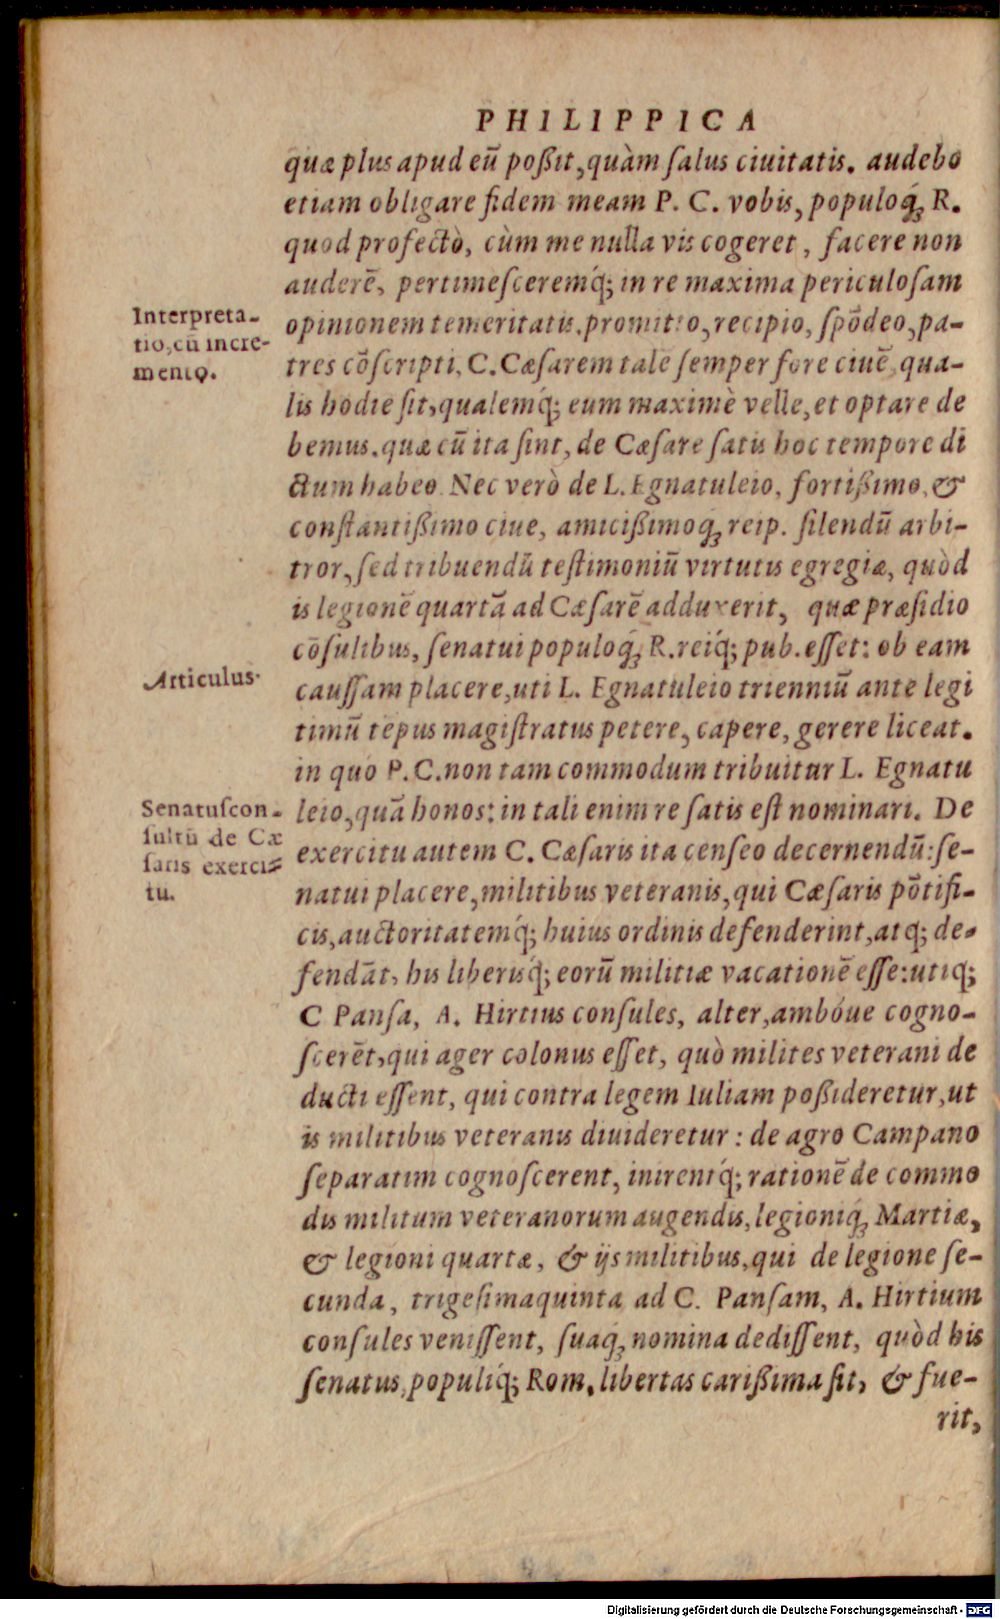 PHILIPPICA
quæ plus apud eū poßit, quàm ſalus ciuitatis. audebo
etiam obligare fidem meam P. C. vobis, populoq́ꝫ R.
quod profectò, cùm me nulla vis cogeret, facere non
auderē, pertimeſceremq́; in re maxima periculoſam
Interpreta-
tio,cū incre-
mento.
opinionem temeritatis. promitto, recipio, ſpōdeo, pa-
tres cōſcripti, C. Cæſarem tale ſemper fore ciuē, qua-
lis hodie ſit, qualemq́; eum maximè velle, et optare de
bemus. quæ cū ita ſint, de Cæſare ſatis hoc tempore di
ctum habeo. Nec verò de L. Egnatuleio, fortißimo, &
conſtantißimo ciue, amicißimoq́ꝫ reip. ſilendū arbi-
tror, ſed tribuendū teſtimoniū virtutis egregiæ, quòd
is legionē quartā ad Cæſarē adduxerit, quæ præſidio
cōſulibus, ſenatui populoq́ꝫ R. reiq́; pub. eſſet: ob eam
Articulus.
cauſſam placere, uti L. Egnatuleio trienniū ante legi
timū tēpus magiſtratus petere, capere, gerere liceat.
in quo P. C. non tam commodum tribuitur L. Egnatu
Senatuſcon-
ſultū de Cæ
ſaris exerci-
tu.
leio, quā honos: in tali enim re ſatis eſt nominari. De
exercitu autem C. Cæſaris ita cenſeo decernendū: ſe-
natui placere, militibus veteranis, qui Cæſaris pōtifi-
cis, auctoritatemq́; huius ordinis defenderint, atq; de-
fendāt, his liberisq́; eorū militiæ vacationē eſſe: utiq;
C Panſa, A. Hirtius conſules, alter, ambóue cogno-
ſcerēt, qui ager colonus eſſet, quò milites veterani de
ducti eſſent, qui contra legem Iuliam poßideretur, ut
is militibus veteranis diuideretur: de agro Campano
ſeparatim cognoſcerent, inirentq́; rationē de commo
dis militum veteranorum augendis, legioniq́ꝫ Martiæ,
& legioni quartæ, & ijs militibus, qui de legione ſe-
cunda, trigeſimaquinta ad C. Panſam, A. Hirtium
conſules veniſſent, ſuaq́ꝫ nomina dediſſent, quòd his
ſenatus, populiq́; Rom. libertas carißima ſit, & fue-
rit,
Digitalisierung gefördert durch die Deutsche Forschungsgemeinschaft - DFG